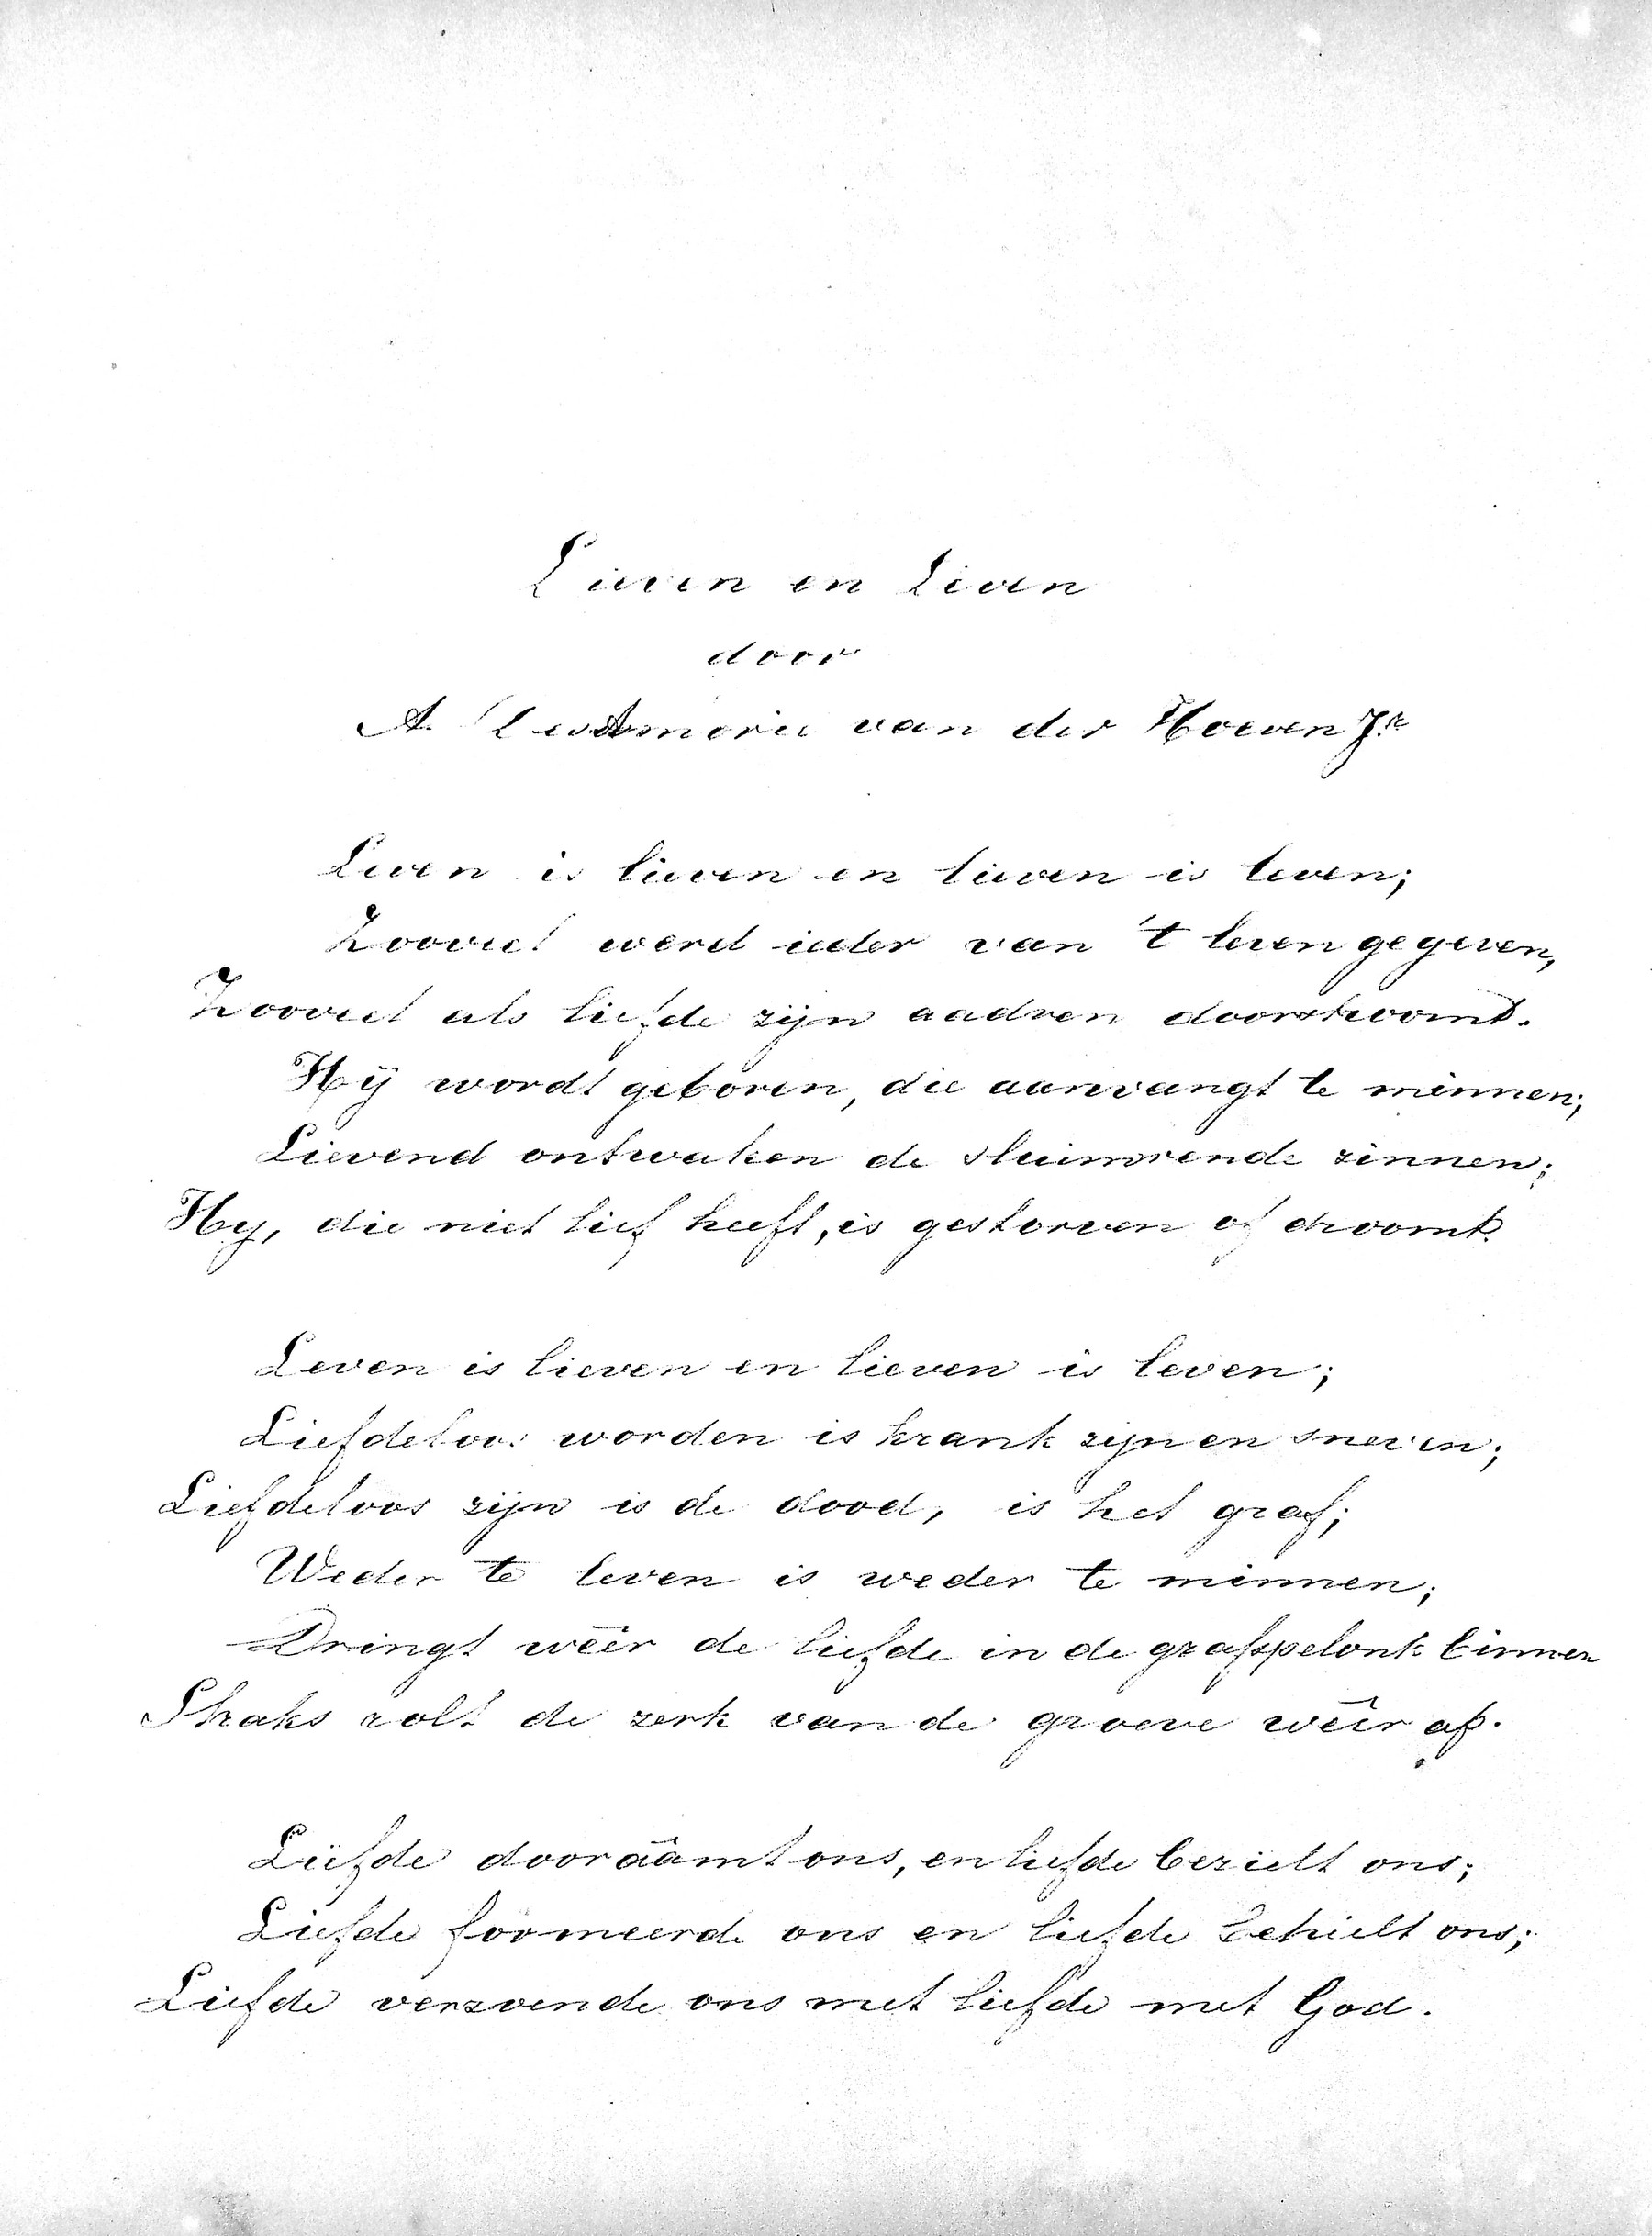 Lieven en Leven
door
A. des Amorie van der Hoeven Jr.
Leven is lieven en lieven is leven;
Zooveel werd ieder van 't leven gegeven,
Zooveel als liefde zijn aadren doorstroomt.
Hij wordt geboren, die aanvangt te minnen;
Lievend ontwaken de sluimrende zinnen;
Hy, die niet lief heeft, is gestorven of droomt.
Leven is lieven en lieven is leven;
Liefdeloos worden is krank zijn en sneven;
Liefdeloos zijn is de dood, is het graf;
Weder te leven is weder te minnen;
Dringt wêêr de liefde in de grafspelonk binnen
Straks rolt de zerk van de groeve wêêr af.
Liefde doorââmt ons, en liefde bezielt ons;
Liefde formeerde ons en liefde behielt ons;
Liefde verzoende ons met liefde met God.